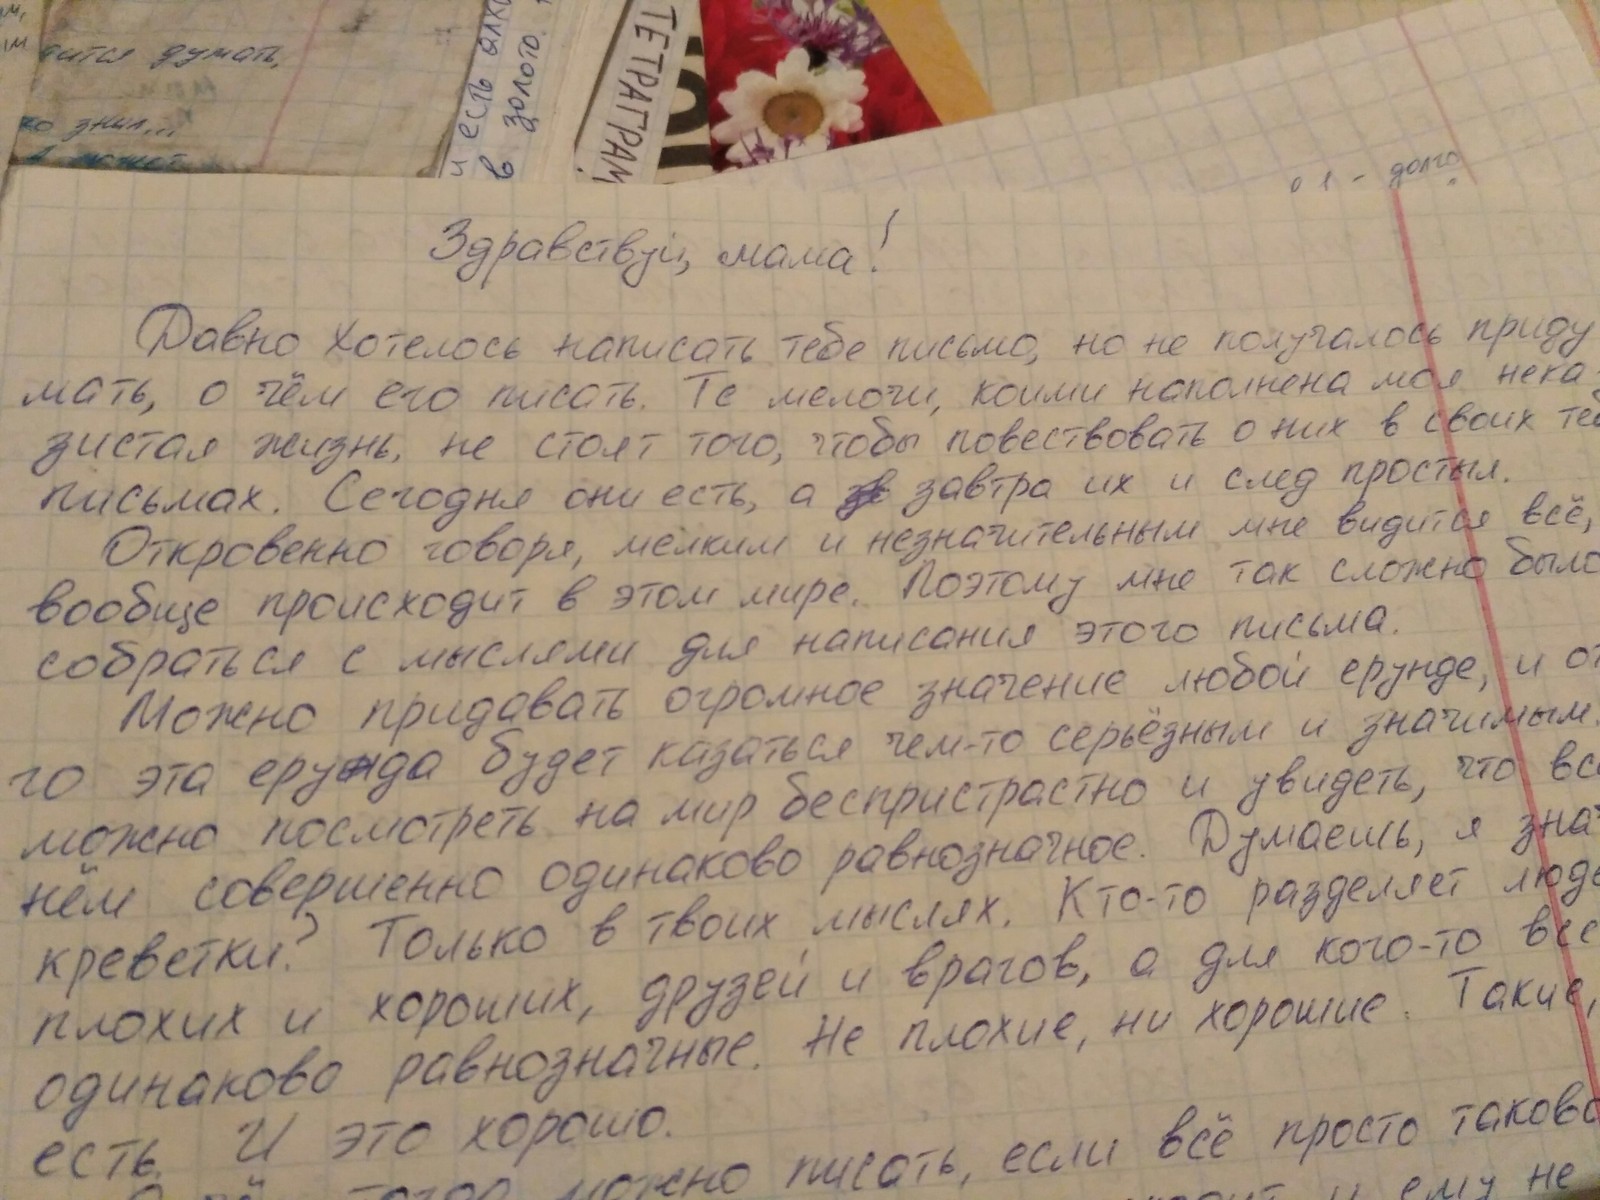 дится думать,
и есть
в золото.
ТЕТРАГРАМ
долго
Здравствуй, мама!
Давно хотелось написать тебе письмо, но не получалось приду
мать, о чём его писать. Те мелочи, коими наполнена моя нека-
зистая жизнь, не стоят того, чтобы повествовать о них в своих теб
письмах. Сегодня они есть, а завтра их и след простыл.
Откровенно говоря, мелким и незначительным мне видится всё,
вообще происходит в этом мире. Поэтому мне так сложно было
собраться с мыслями для написания этого письма.
Можно придавать огромное значение любой ерунде, и от
го эта ерунда будет казаться чем-то серьёзным и значимым.
можно посмотреть на мир беспристрастно и увидеть, что всё
нём совершенно одинаково равнозначное. Думаешь, я знач
креветки? Только в твоих мыслях. Кто-то разделяет люде
плохих и хороших, друзей и врагов, а для кого-то все
одинаково равнозначные. Не плохие, ни хорошие. Такие,
есть. И это хорошо.
можно писать, если всё просто таково
и ему не